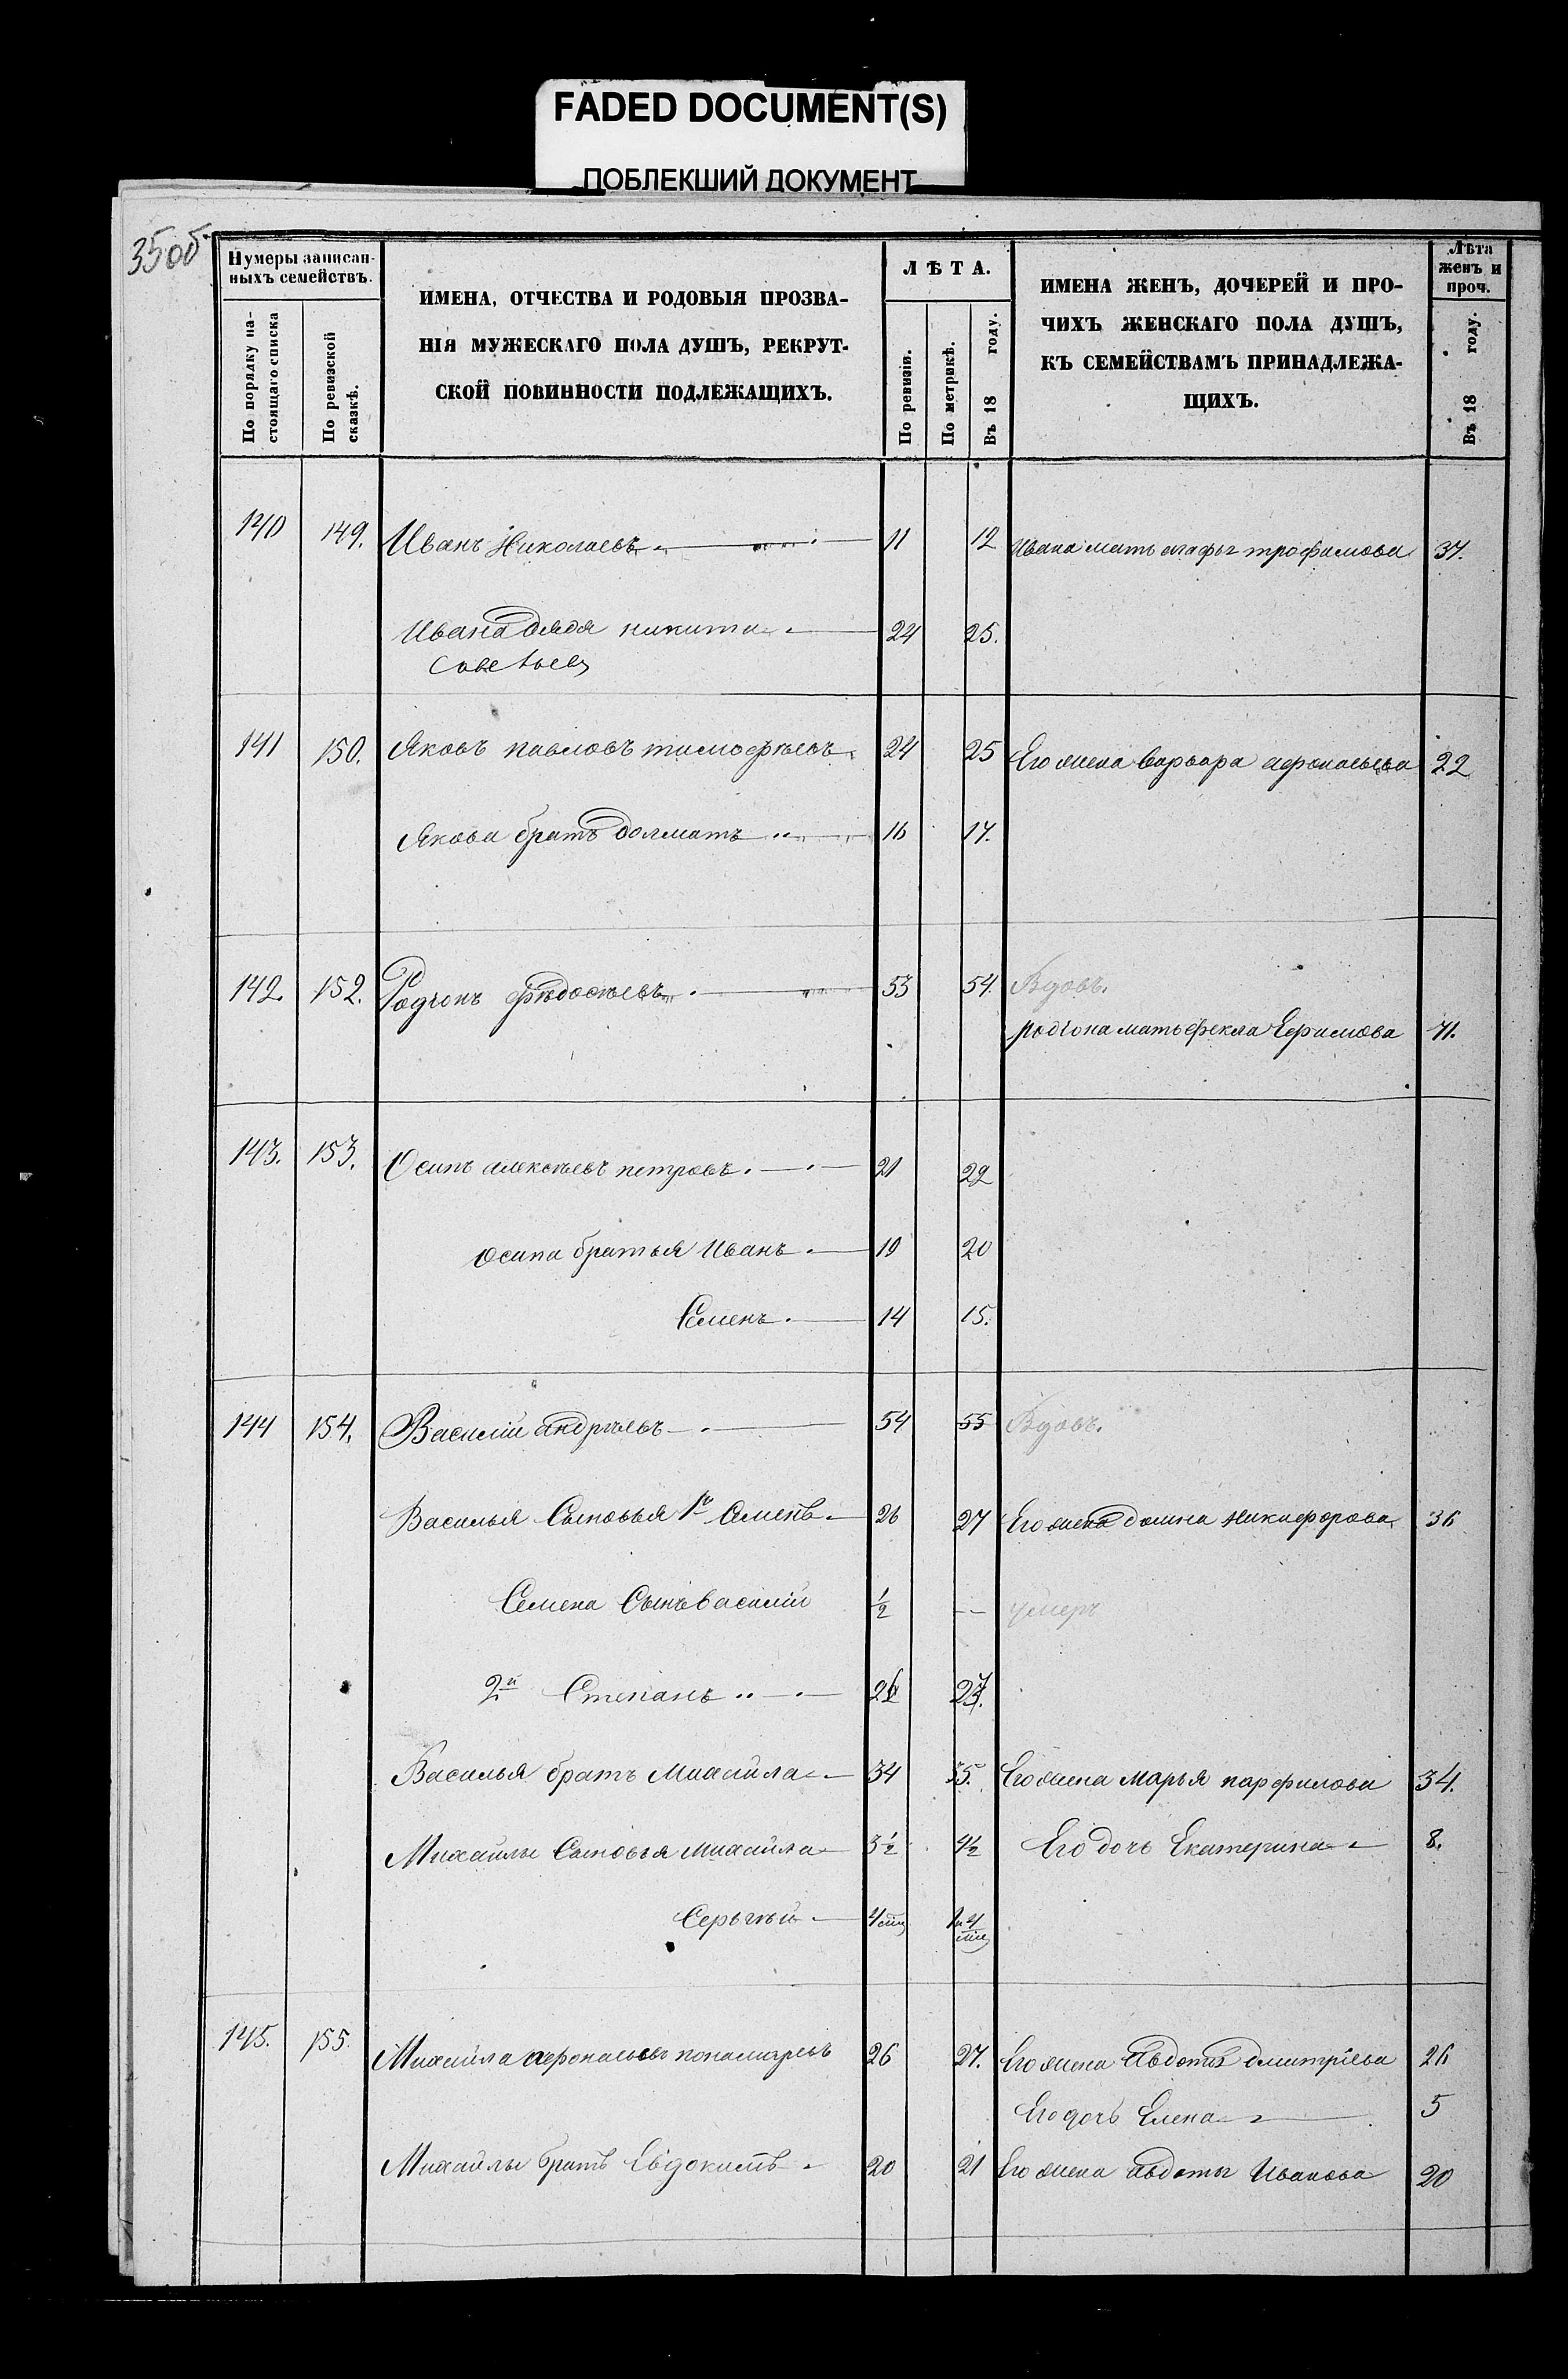 FADED DOCUMENT(S)
ПОБЛЕКШИЙ ДОКУМЕНТ
35об
Нумеры записан-
ныхъ семействъ.
По порядку на-
стоящаго списка
По ревизской
сказкѣ.
ИМЕНА, ОТЧЕСТВА И РОДОВЫЯ ПРОЗВА-
НІЯ МУЖЕСКАГО ПОЛА ДУШЪ, РЕКРУТ-
СКОЙ ПОВИННОСТИ ПОДЛЕЖАЩИХЪ.
ЛѢТА.
По ревизіи.
По метрикѣ.
Въ 18 году.
ИМЕНА ЖЕНЪ, ДОЧЕРЕЙ И ПРО-
ЧИХЪ ЖЕНСКАГО ПОЛА ДУШЪ,
КЪ СЕМЕЙСТВАМЪ ПРИНАДЛЕЖА-
ЩИХЪ.
Лѣта
женъ и
проч.
Въ 18 году.
140 149. Иванъ Николаевъ 11 12 Ивана мать агафья трофимова 37.
Ивана дядя никита 24 25.
Савельевъ
141 150. Яковъ павловъ тимофѣевъ 24 25 Его жена варвара афонасьева 22
Якова братъ долматъ 16 17.
142 152. Родіонъ фѣдосѣевъ 53 54 Вдовъ.
родіона мать фекла Ефимова 71.
143. 153. Осипъ алексѣевъ петровъ 21 22
Осипа братья Иванъ 19 20
Семенъ 14 15.
144 154. Василій андрѣевъ 54 55 Вдовъ.
Василья Сыновья 1й Семенъ 26 27 Его жена домна никифорова 36
Семена Сынъ василій 1/2 -- умеръ
2й Степанъ 26 27.
Василья братъ Михайла 34 35. Его жена марья парфилова 34.
Михайлы Сыновья михайла 3 1/2 4 1/2 Его дочь Екатерина 8.
Сергѣй 4 мѣц 1 и 4
мѣц
145. 155 Михайла афонасьевъ понамаревъ 26 27. Его жена Авдотья дмитріева 26
Его дочь Елена 5
Михайлы братъ Евдокимъ 20 21 Его жена авдотья Иванова 20